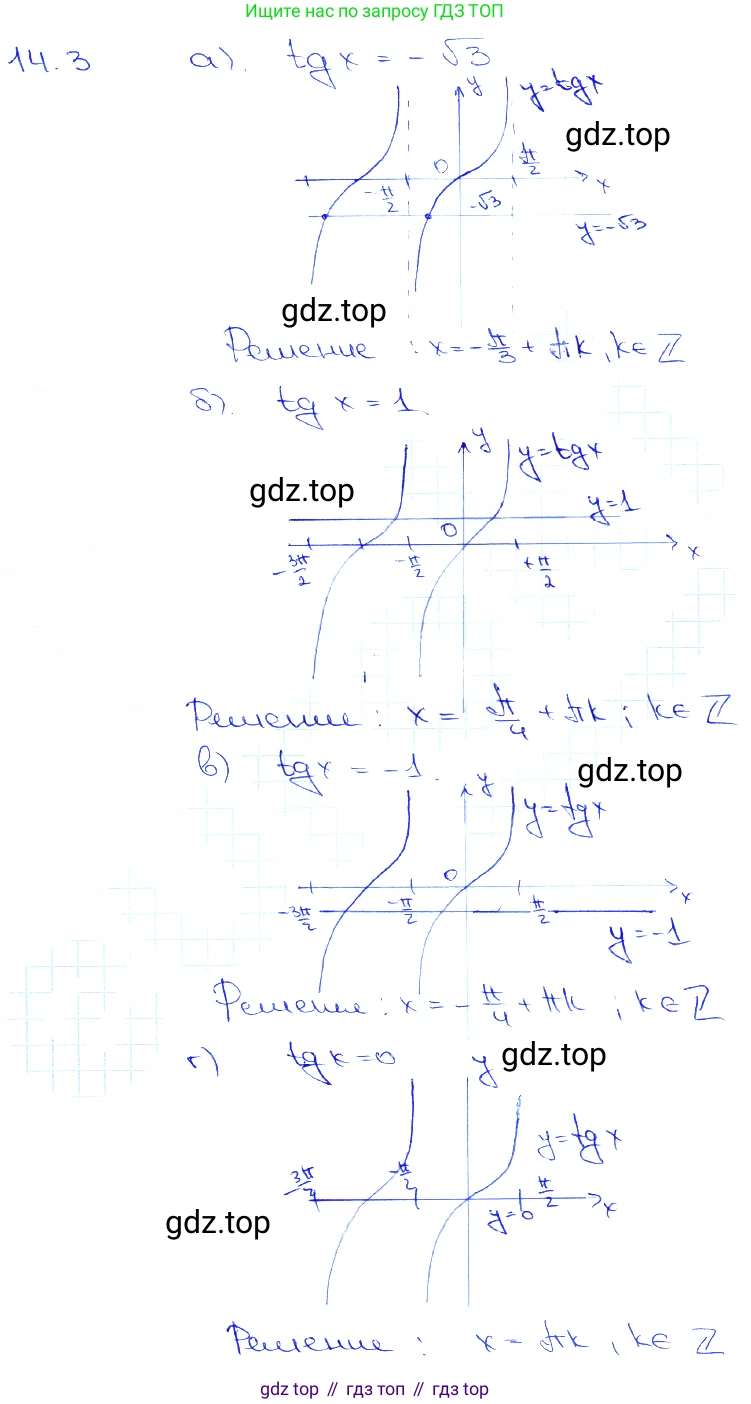 Ищите нас по запросу ГДЗ ТОП
14.3 а). tg x = -√3
y y=tgx
gdz.top
0 π/2
-π/2 -√3 x
y=-√3
gdz.top
Решение : x=-π/3 + πk, k∈ℤ
б). tg x = 1
y y=tgx
gdz.top
y=1
0 x
-3π/2 -π/2 +π/2
Решение : x = π/4 + πk ; k∈ℤ
в) tgx = -1.
gdz.top
y y=tgx
0 x
-3π/2 -π/2 π/2
y=-1
Решение : x = -π/4 + πk ; k∈ℤ
г) tgx=0 y gdz.top
y=tgx
-π/2 π/2
y=0 x
gdz.top
Решение : x = πk, k∈ℤ
gdz top // гдз топ // gdz top